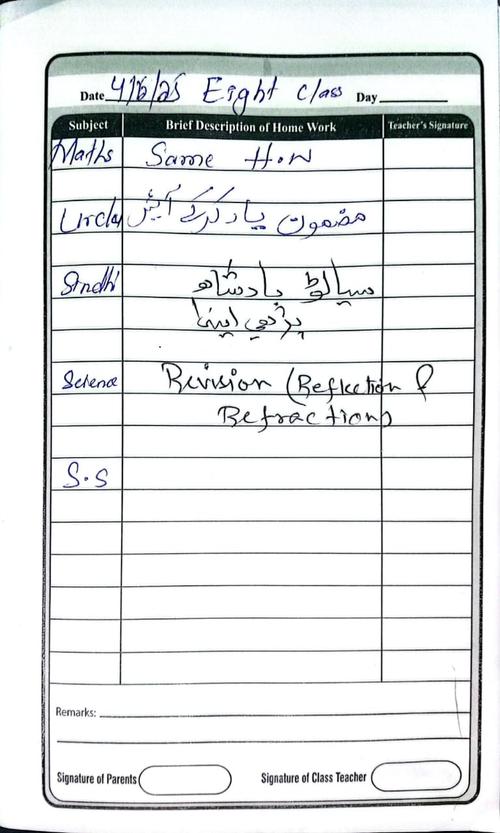 Date 4/8/25 Eight Class Day
Subject Brief Description of Home Work Teacher's Signature
Maths Same H.W
Urdu مضمون یاد کرکے آئیں
Sindhi سيالو بادشاھ
پڙهي اينا
Science Revision (Reflection &
Refraction)
S.S
Remarks:
Signature of Parents Signature of Class Teacher